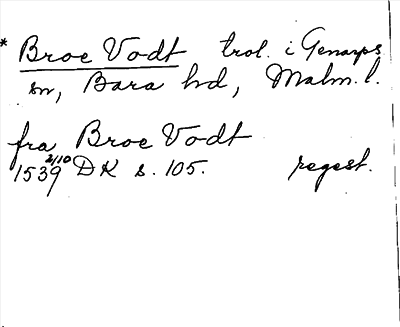 * Broe Vodt trol. i Genarps
sn, Bara hd, Malm. l.
fra Broe Vodt
1539 2/10 DK s. 105. regest.